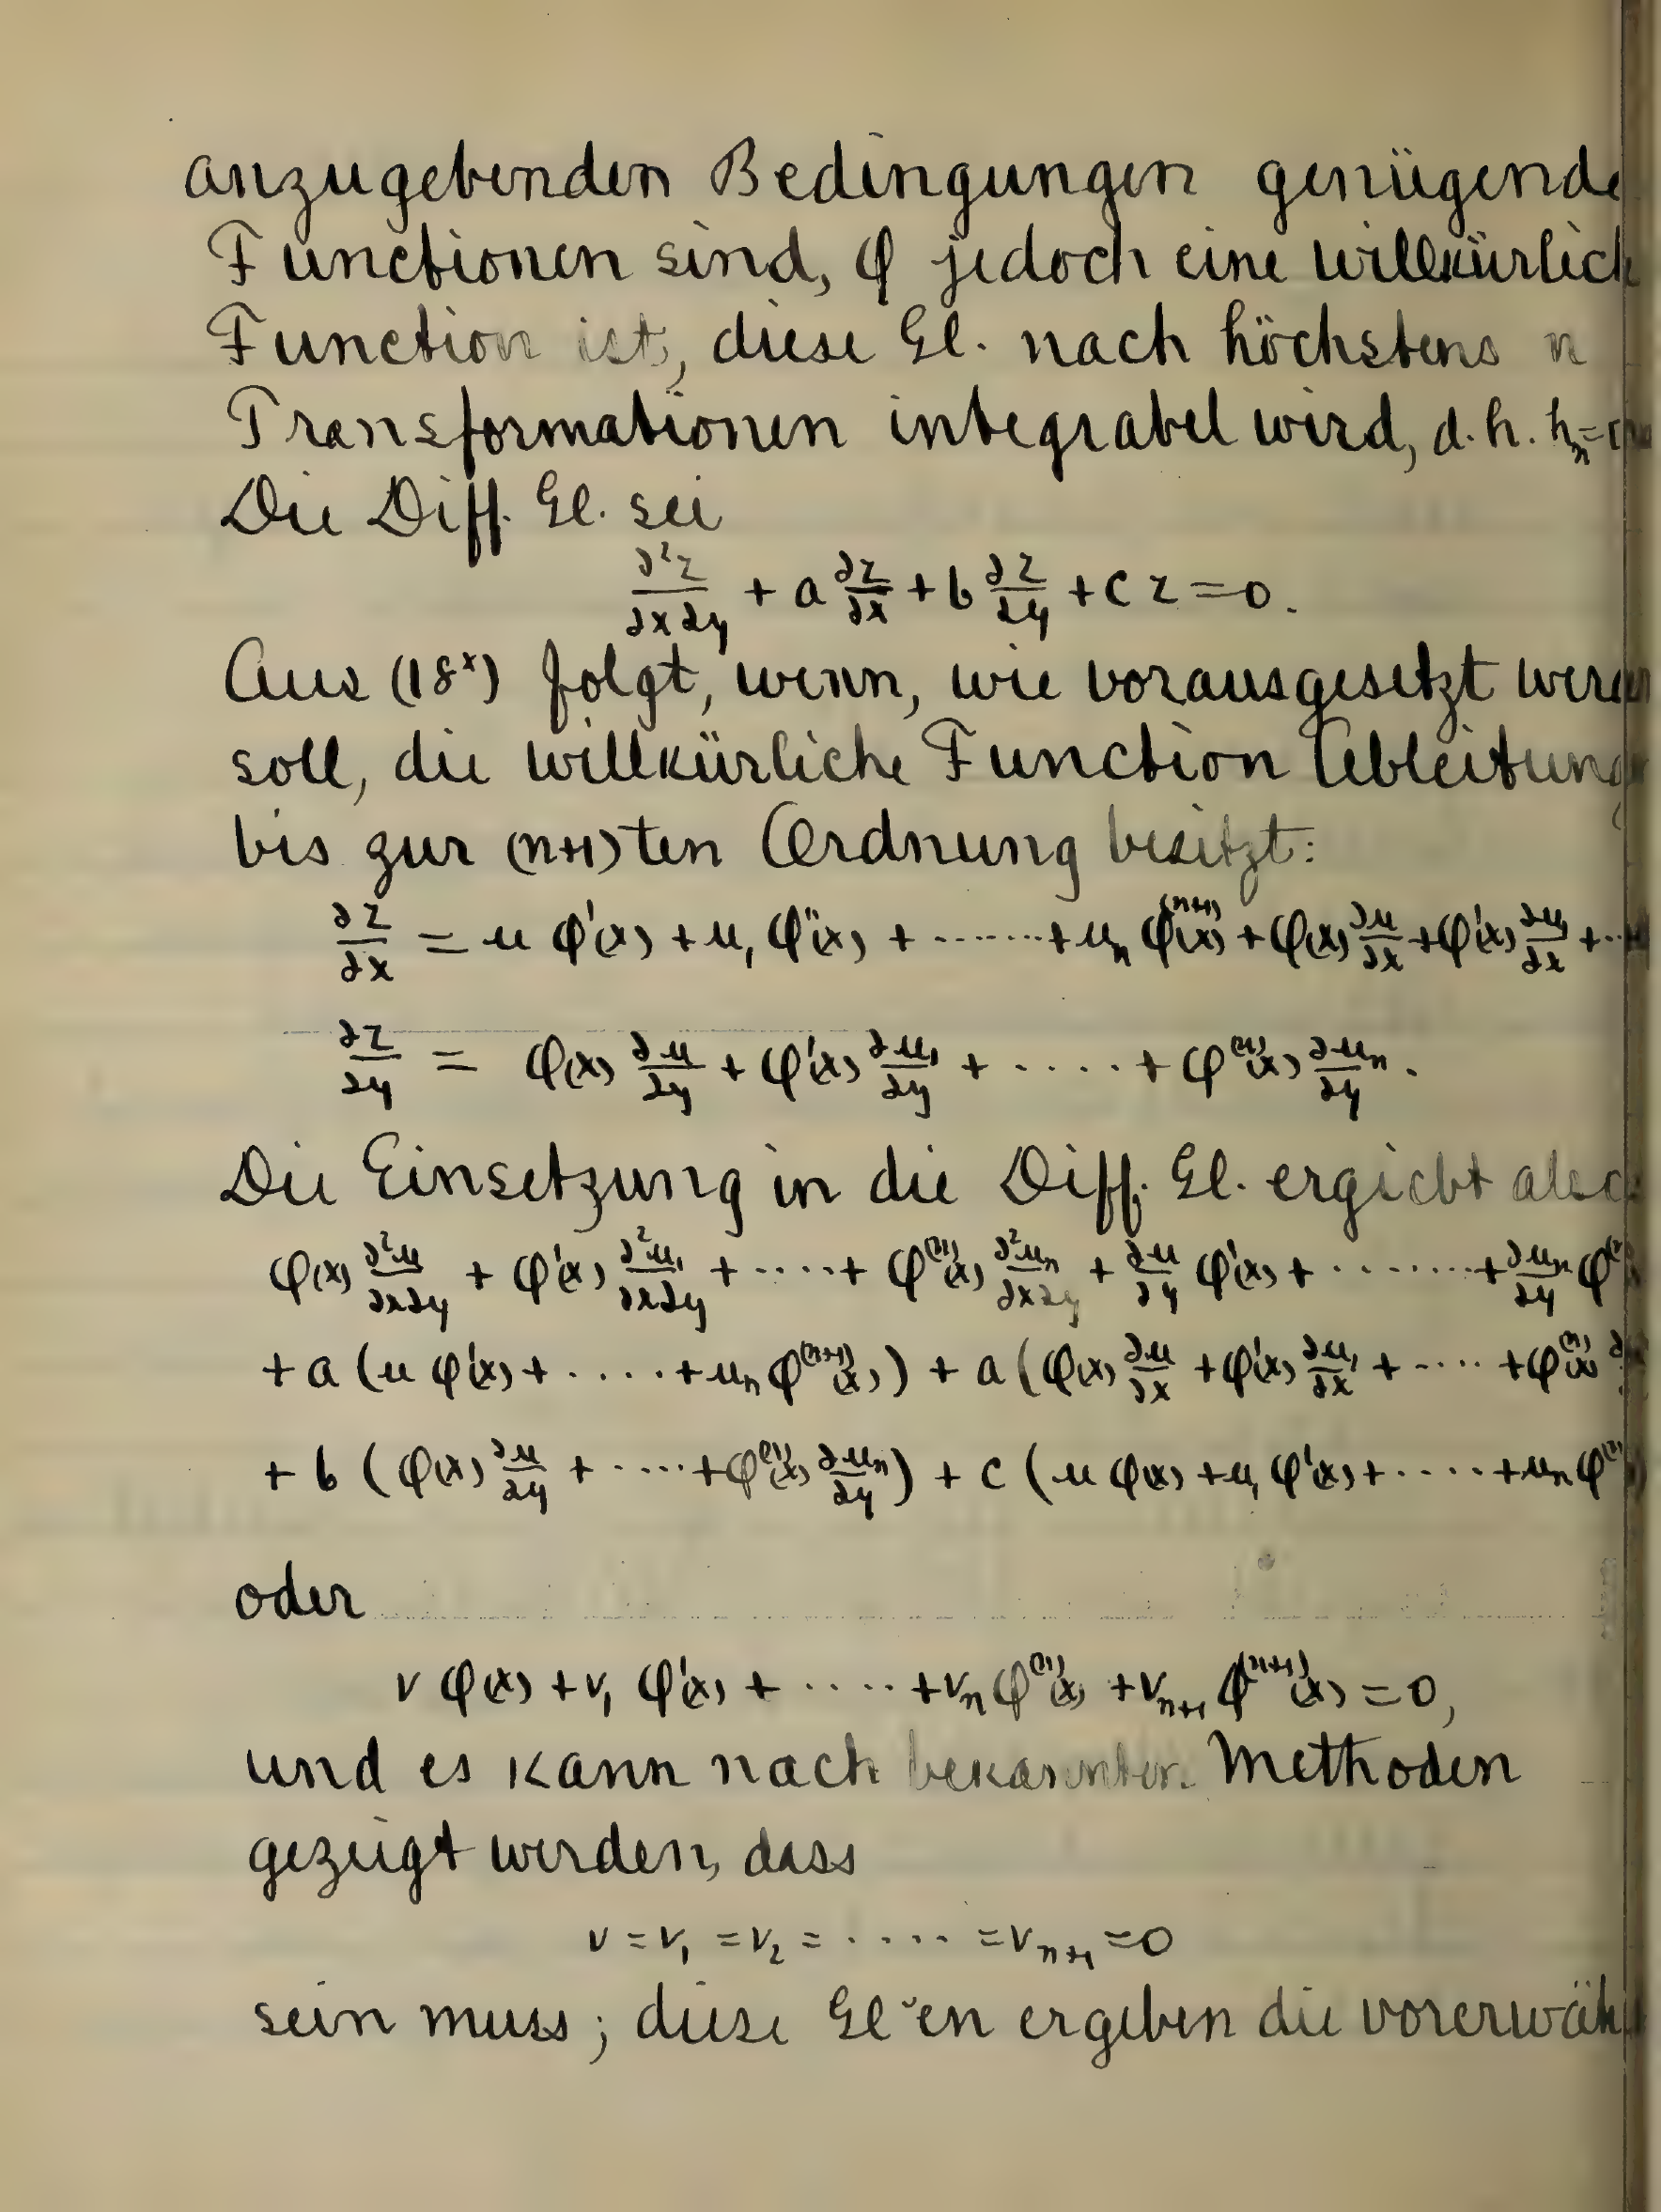 anzugebenden Bedingungen genügende
Functionen sind, φ jedoch eine willkürlich
Function ist, diese Gl. nach höchstens n
Transformationen integrabel wird, d. h. hₙ=
Die Diff. Gl. sei
∂²z/∂x∂y + a ∂z/∂x + b ∂z/∂y + c z = 0.
Aus (18ˣ) folgt, wenn, wie vorausgesetzt
soll, die willkürliche Function Ableitung
bis zur (n+1)ten Ordnung besitzt:
∂z/∂x = u φ'(x) + u₁ φ''(x) + ....... + uₙ φ⁽ⁿ⁺¹⁾(x) + φ(x) ∂u/∂x + φ'(x) ∂u₁/∂x + ..
∂z/∂y = φ(x) ∂u/∂y + φ'(x) ∂u₁/∂y + ..... + φ⁽ⁿ⁾(x) ∂uₙ/∂y .
Die Einsetzung in die Diff. Gl. ergiebt also
φ(x) ∂²u/∂x∂y + φ'(x) ∂²u₁/∂x∂y + ..... + φ⁽ⁿ⁾(x) ∂²uₙ/∂x∂y + ∂u/∂y φ'(x) + ........ + ∂uₙ/∂y φ
+ a (u φ'(x) + ..... + uₙ φ⁽ⁿ⁺¹⁾(x)) + a (φ(x) ∂u/∂x + φ'(x) ∂u₁/∂x + ..... + φ⁽ⁿ⁾(x)
+ b (φ(x) ∂u/∂y + ..... + φ⁽ⁿ⁾(x) ∂uₙ/∂y) + c (u φ(x) + u₁ φ'(x) + ..... + uₙ φ
oder
v φ(x) + v₁ φ'(x) + ..... + vₙ φ⁽ⁿ⁾(x) + vₙ₊₁ φ⁽ⁿ⁺¹⁾(x) = 0,
und es kann nach bekannten Methoden
gezeigt werden, dass
v = v₁ = v₂ = ..... = vₙ₊₁ = 0
sein muss; diese Gl˘en ergeben die vorerwäh